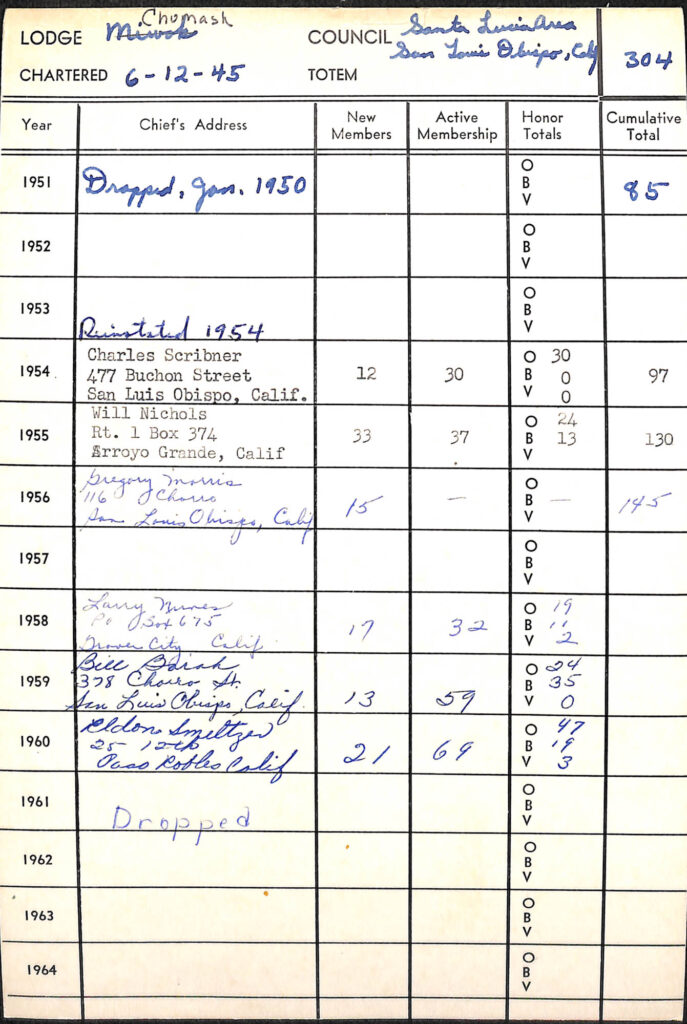 Chumash
LODGE Miwok COUNCIL Santa Lucia Area
San Louis Obispo, Calif 304
CHARTERED 6-12-45 TOTEM
Year Chief's Address New Members Active Membership Honor Totals Cumulative Total
1951 Dropped, Jan. 1950 O B V 85
1952 O B V
1953 O B V
Reinstated 1954
Charles Scribner O 30
1954 477 Buchon Street 12 30 B 0 97
San Luis Obispo, Calif. V 0
Will Nichols O 24
1955 Rt. 1 Box 374 33 37 B 13 130
Arroyo Grande, Calif V
Gregory Morris O
1956 116 Chorro 15 — B — 145
San Louis Obispo, Calif V
1957 O B V
Larry O 19
1958 PO Box 675 17 32 B 11
City Calif V 2
Bill O 24
1959 378 Chorro St. B 35
San Luis Obispo, Calif. 13 59 V 0
Eldon Smeltzer O 47
1960 25 12th 21 69 B 19
Paso Robles Calif V 3
1961 Dropped O B V
1962 O B V
1963 O B V
1964 O B V